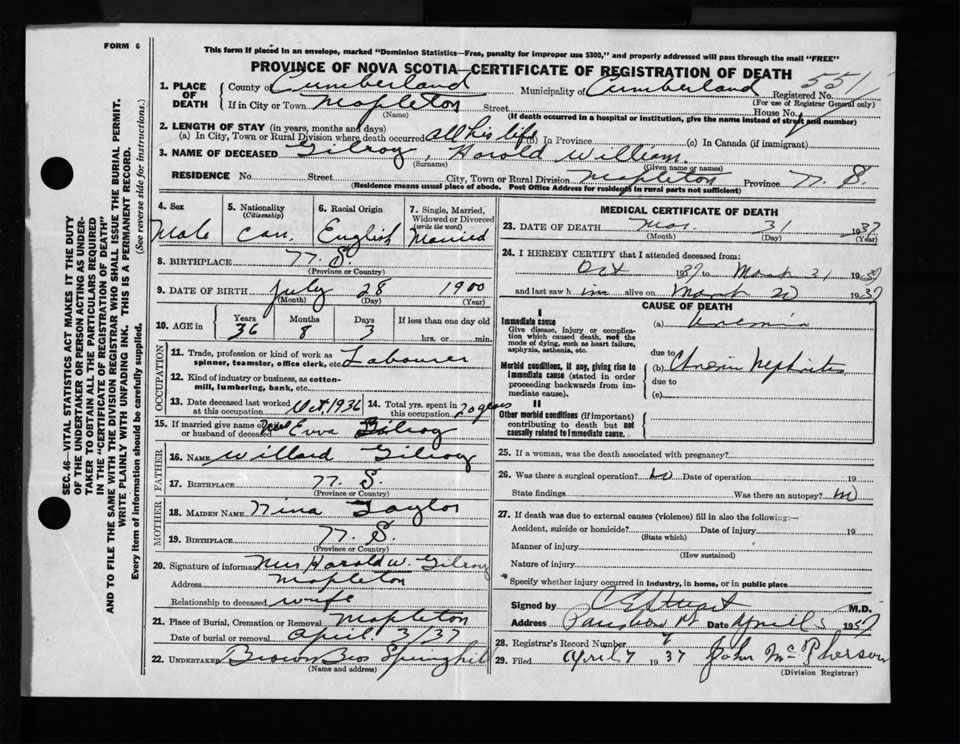 FORM 6
This form if placed in an envelope, marked "Dominion Statistics—Free, penalty for improper use $300," and properly addressed will pass through the mail "FREE"
PROVINCE OF NOVA SCOTIA—CERTIFICATE OF REGISTRATION OF DEATH
551
1. PLACE OF DEATH
County of Cumberland Municipality of Cumberland Registered No.
(For use of Registrar General only)
If in City or Town Mapleton Street House No.
(Name) (If death occurred in a hospital or institution, give the name instead of street and number)
2. LENGTH OF STAY (in years, months and days)
(a) In City, Town or Rural Division where death occurred all his life (b) In Province (c) In Canada (if immigrant)
3. NAME OF DECEASED Gilroy, Harold William.
(Surname) (Given name or names)
RESIDENCE No. Street City, Town or Rural Division Mapleton Province N. S.
(Residence means usual place of abode. Post Office Address for residents in rural parts not sufficient)
4. Sex Male
5. Nationality (Citizenship) Can.
6. Racial Origin English
7. Single, Married, Widowed or Divorced (write the word) Married
8. BIRTHPLACE N. S.
(Province or Country)
9. DATE OF BIRTH July 28 1900
(Month) (Day) (Year)
10. AGE in Years 36 Months 8 Days 3 If less than one day old hrs. or min.
OCCUPATION
11. Trade, profession or kind of work as spinner, teamster, office clerk, etc. Labourer
12. Kind of industry or business, as cotton-mill, lumbering, bank, etc.
13. Date deceased last worked at this occupation Oct. 1936
14. Total yrs. spent in this occupation 20 years
15. If married give name of wife or husband of deceased Evva Gilroy
FATHER
16. NAME Willard Gilroy
17. BIRTHPLACE N. S.
(Province or Country)
MOTHER
18. MAIDEN NAME Nina Taylor
19. BIRTHPLACE N. S.
(Province or Country)
20. Signature of informant Mrs Harold W. Gilroy
Address Mapleton
Relationship to deceased wife
21. Place of Burial, Cremation or Removal Mapleton
Date of burial or removal April 3/37
22. UNDERTAKER Brown Bros Springhill
(Name and address)
MEDICAL CERTIFICATE OF DEATH
23. DATE OF DEATH Mar. 31 1937
(Month) (Day) (Year)
24. I HEREBY CERTIFY that I attended deceased from:
Oct 1937 to March 31 1937
and last saw him alive on March 20 1937
CAUSE OF DEATH
I
Immediate cause (a) Uremia
Give disease, injury or complication which caused death, not the mode of dying, such as heart failure, asphyxia, asthenia, etc.
due to
Morbid conditions, if any, giving rise to immediate cause (stated in order proceeding backwards from immediate cause).
(b) Nephritis
due to
(c)
II
Other morbid conditions (if important) contributing to death but not causally related to immediate cause.
25. If a woman, was the death associated with pregnancy?
26. Was there a surgical operation? No Date of operation 19
State findings Was there an autopsy? No
27. If death was due to external causes (violence) fill in also the following:—
Accident, suicide or homicide? Date of injury 19
(State which)
Manner of injury
(How sustained)
Nature of injury
Specify whether injury occurred in industry, in home, or in public place
Signed by C E Stuart M.D.
Address Parrsboro Date April 5 1937
28. Registrar's Record Number
29. Filed April 7 1937 John McPherson
(Division Registrar)
SEC. 46—VITAL STATISTICS ACT MAKES IT THE DUTY
OF THE UNDERTAKER OR PERSON ACTING AS UNDER-
TAKER TO OBTAIN ALL THE PARTICULARS REQUIRED
IN THE "CERTIFICATE OF REGISTRATION OF DEATH"
AND TO FILE THE SAME WITH THE DIVISION REGISTRAR WHO SHALL ISSUE THE BURIAL PERMIT.
WRITE PLAINLY WITH UNFADING INK. THIS IS A PERMANENT RECORD.
Every item of information should be carefully supplied. (See reverse side for instructions.)